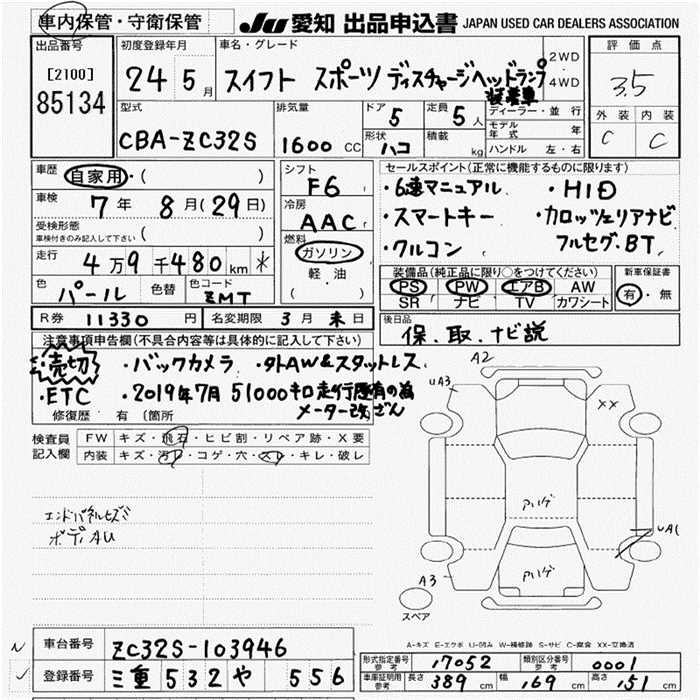 車内保管・守衛保管
JU 愛知 出品申込書 JAPAN USED CAR DEALERS ASSOCIATION
出品番号
[2100]
85134
初度登録年月
24 5 月
車名・グレード
スイフト スポーツ ディスチャージヘッドランプ
装着車
2WD
4WD
評価点
3.5
外装 内装
C C
型式
CBA-ZC32S
排気量
1600 CC
ドア 5
形状 ハコ
定員 5 人
積載 kg
ディーラー・並行
モデル年式 年
ハンドル 左・右
車歴
自家用・( )
車検
7年 8月(29日)
受検形態
車検付きのみ記入して下さい ( )
走行
4万9千480km ＊
色 パール
色替
色コード ZMT
シフト
F6
冷房
AAC
燃料
ガソリン
軽・油
( )
セールスポイント(正常に機能するものに限ります)
・6速マニュアル ・HID
・スマートキー ・カロッツェリアナビ
・クルコン フルセグ.BT
装備品(純正品に限り○をつけてください)
PS PW エアB AW
SR ナビ TV カワシート
新車保証書
有・無
R券 11330 円 名変期限 3月 末日
後日品
保.取.ナビ説
注意事項申告欄(不具合内容等は具体的に記入して下さい)
・売切 ・バックカメラ ・外AW&スタットレス
・ETC ・2019年7月 51000キロ走行歴有の為
メーター改ざん
修復歴 有 〔箇所
検査員
記入欄
FW キズ・飛石・ヒビ割・リペア跡・X要
内装 キズ・汚レ・コゲ・穴・スレ・キレ・破レ
エンドパネルヒズミ
ボディAU
A2
uA3
××
アハゲ
uA1
アハゲ
A3
スペア
A-キズ E-エクボ U-凹み W-補修跡 S-サビ C-腐食 XX-交換済
車台番号 ZC32S-103946
登録番号 三重 532 や 556
形式指定番号
参考
17052
類別区分番号
参考
0001
車庫証明用
参考
長さ 389 cm 幅 169 cm 高さ 151 cm